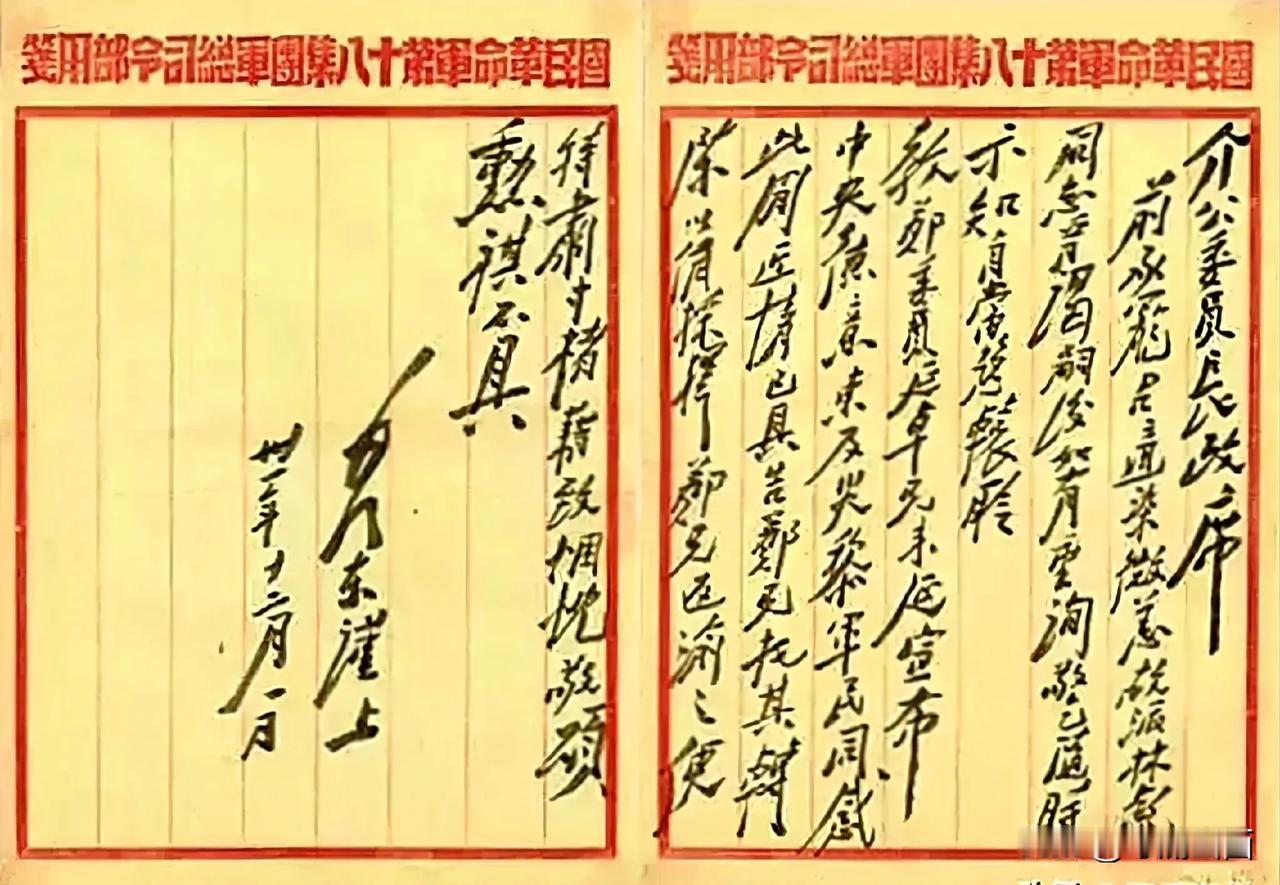 國民革命軍第十八集團軍總司令部用箋
介公委員長政席
前承寵召適染微恙故派林彪
同志晉謁嗣後如有垂詢敬乞隨時
示知自當趨轅聆
教鄭委員延卓兄来延宣布
中央德意惠及災黎軍民同感
此間近情已具告鄭兄托其轉
陳以備採擇鄭兄返渝之便
國民革命軍第十八集團軍總司令部用箋
特肅寸楮藉致悃忱敬頌
勳祺不具
毛澤东謹上
卅一年十二月一日